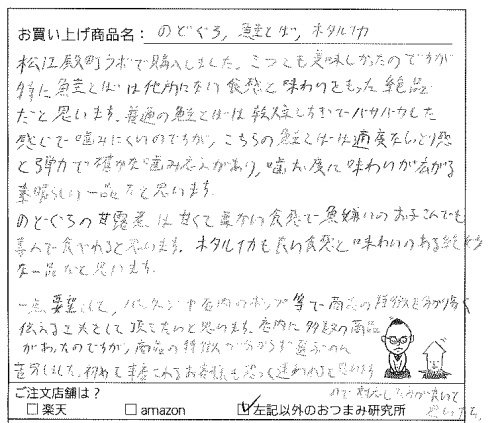 お買い上げ商品名： のどぐろ, 鮭とば, ホタルイカ
松江殿町ラボで購入しました。三つとも美味しかったのですが
特に鮭とばは他所にない食感と味わいをもった絶品
だと思います。普通の鮭とばは乾燥しすぎてパサパサした
感じで噛みにくいのですが, こちらの鮭とばは適度なしっとり感
と弾力で確かな噛み応えがあり, 噛む度に味わいが広がる
素晴らしい一品だと思います。
のどぐろの甘露煮は甘くて 食感で魚嫌いのお子さんでも
喜んで食べれると思います。ホタルイカも良い食感と味わいのある絶妙
な一品だと思います。
一点要望として, パッケージや店内のポップ等で商品の特徴を分り易く
伝える工夫をして頂きたいと思います。店内に多数の商品
があったのですが, 商品の特徴が分からず選ぶのに
苦労しました。初めて来店されるお客様も恐らく迷われると思います
ので対応した方が良いと
思います。
ご注文店舗は？
□ 楽天 □ amazon ☑ 左記以外のおつまみ研究所